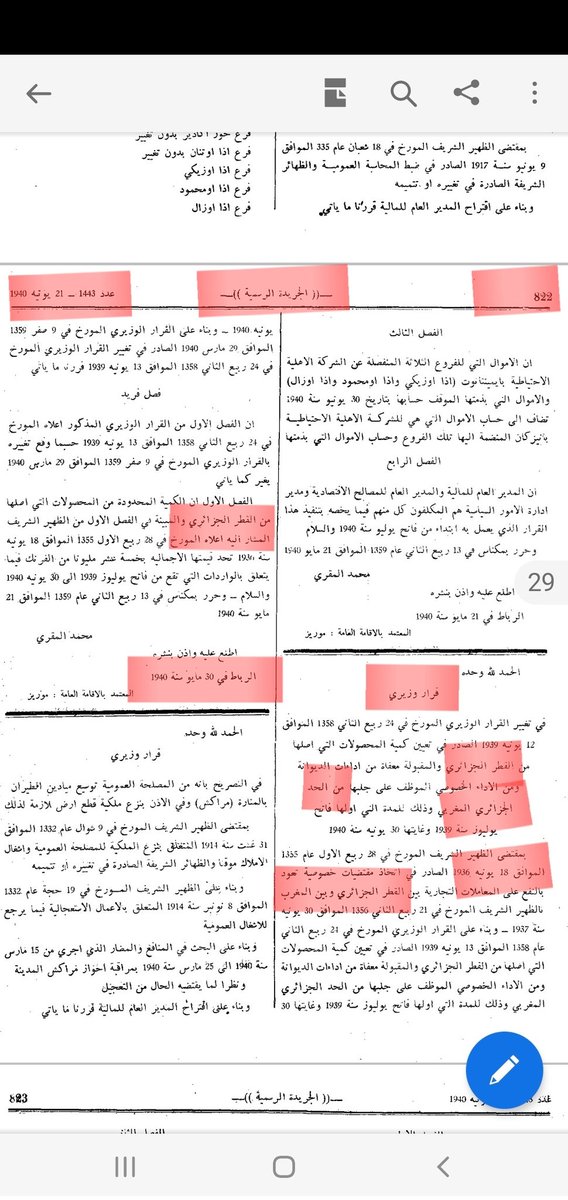 فرع حوز اكادير بدون تغيير
فرع اذا اوتنان بدون تغيير
فرع اذا اوزيكي
فرع اذا اومحمود
فرع اذا اوزال
بمقتضى الظهير الشريف المورخ في 18 شعبان عام 335 الموافق
9 يونيو سنة 1917 الصادر في ضبط المحاسبة العمومية والظهائر
الشريفة الصادرة في تغييره او تتميمه
وبناء على اقتراح المدير العام للمالية قررنا ما ياتي
822
—(( الجريدة الرسمية ))—
عدد 1443 – 21 يونيه 1940
الفصل الثالث
ان الاموال التي للفروع الثلاثة المنفصلة عن الشركة الاهلية
الاحتياطية بايمينتانوت (اذا اوزيكي واذا اومحمود واذا اوزال)
والاموال التي بذمتها الموقف حسابها بتاريخ 30 يونيو سنة 1940
تضاف الى حساب الاموال التي هي للشركة الاهلية الاحتياطية
بانيزكان المنضمة اليها تلك الفروع وحساب الاموال التي بذمتها
الفصل الرابع
ان المدير العام للمالية والمدير العام للمصالح الاقتصادية ومدير
ادارة الامور السياسية هم المكلفون كل منهم فيما يخصه بتنفيذ هذا
القرار الذي يعمل به ابتداء من فاتح يوليو سنة 1940 والسلام
وحرر بمكناس في 13 ربيع الثاني عام 1359 الموافق 21 مايو 1940
محمد المقري
اطلع عليه واذن بنشره
الرباط في 21 مايو سنة 1940
المعتمد بالاقامة العامة : موريز
الحمد لله وحده
قرار وزيري
في تغيير القرار الوزيري المورخ في 24 ربيع الثاني 1358 الموافق
12 يونيه 1939 الصادر في تعيين كمية المحصولات التي اصلها
من القطر الجزائري والمقبولة معفاة من اداءات الديوانة
ومن الاداء الخصوصي الموظف على جلبها من الحد
الجزائري المغربي وذلك للمدة التي اولها فاتح
يوليوز سنة 1939 وغايتها 30 يونيه سنة 1940
بمقتضى الظهير الشريف المورخ في 28 ربيع الاول عام 1355
الموافق 18 يونيه 1936 الصادر في اتخاذ مقتضيات خصوصية تعود
بالنفع على المعاملات التجارية بين القطر الجزائري وبين المغرب
بالظهير الشريف المورخ في 21 ربيع الثاني 1356 الموافق 30 يونيه
سنة 1937 – وبناء على القرار الوزيري المورخ في 24 ربيع الثاني
عام 1358 الموافق 13 يونيه 1939 الصادر في تعيين كمية المحصولات
التي اصلها من القطر الجزائري والمقبولة معفاة من اداءات الديوانة
ومن الاداء الخصوصي الموظف على جلبها من الحد الجزائري
المغربي وذلك للمدة التي اولها فاتح يوليوز سنة 1939 وغايتها 30
يونيه 1940 – وبناء على القرار الوزيري المورخ في 9 صفر 1359
الموافق 29 مارس 1940 الصادر في تغيير القرار الوزيري المورخ
في 24 ربيع الثاني 1358 الموافق 13 يونيه 1939 قررنا ما ياتي
فصل فريد
ان الفصل الاول من القرار الوزيري المذكور اعلاه المورخ
في 24 ربيع الثاني 1358 الموافق 13 يونيه 1939 حسبما وقع تغييره
بالقرار الوزيري المورخ في 9 صفر 1359 الموافق 29 مارس 1940
يغير كما ياتي
الفصل الاول ان الكمية المحدودة من المحصولات التي اصلها
من القطر الجزائري والمبينة في الفصل الاول من الظهير الشريف
المشار اليه اعلاه المورخ في 28 ربيع الاول 1355 الموافق 18 يونيه
سنة 1936 تحد قيمتها الاجمالية بخمسة عشر مليونا من الفرنك فيما
يتعلق بالواردات التي تقع من فاتح يوليوز 1939 الى 30 يونيه 1940
والسلام – وحرر بمكناس في 13 ربيع الثاني عام 1359 الموافق 21
مايو سنة 1940
محمد المقري
اطلع عليه واذن بنشره
الرباط في 30 مايو سنة 1940
المعتمد بالاقامة العامة : موريز
الحمد لله وحده
قرار وزيري
في التصريح بانه من المصلحة العمومية توسيع ميادين الطيران
بالمنارة (مراكش) وفي الاذن بنزع ملكية قطع ارض لازمة لذلك
بمقتضى الظهير الشريف المورخ في 9 شوال عام 1332 الموافق
31 غشت سنة 1914 المتعلق بنزع الملكية للمصلحة العمومية واشغال
الاملاك موقتا والظهائر الشريفة الصادرة في تغييره او تتميمه
وبناء على الظهير الشريف المورخ في 19 حجة عام 1332
الموافق 8 نونبر سنة 1914 المتعلق بالاعمال الاستعجالية فيما يرجع
للاشغال العمومية
وبناء على البحث في المنافع والمضار الذي اجري من 15 مارس
سنة 1940 الى 25 مارس سنة 1940 بمراقبة احواز مراكش المدينة
ونظرا لما يقتضيه الحال من التعجيل
وبناء على اقتراح المدير العام للمالية قررنا ما ياتي
29
823
—(( الجريدة الرسمية ))—
1940